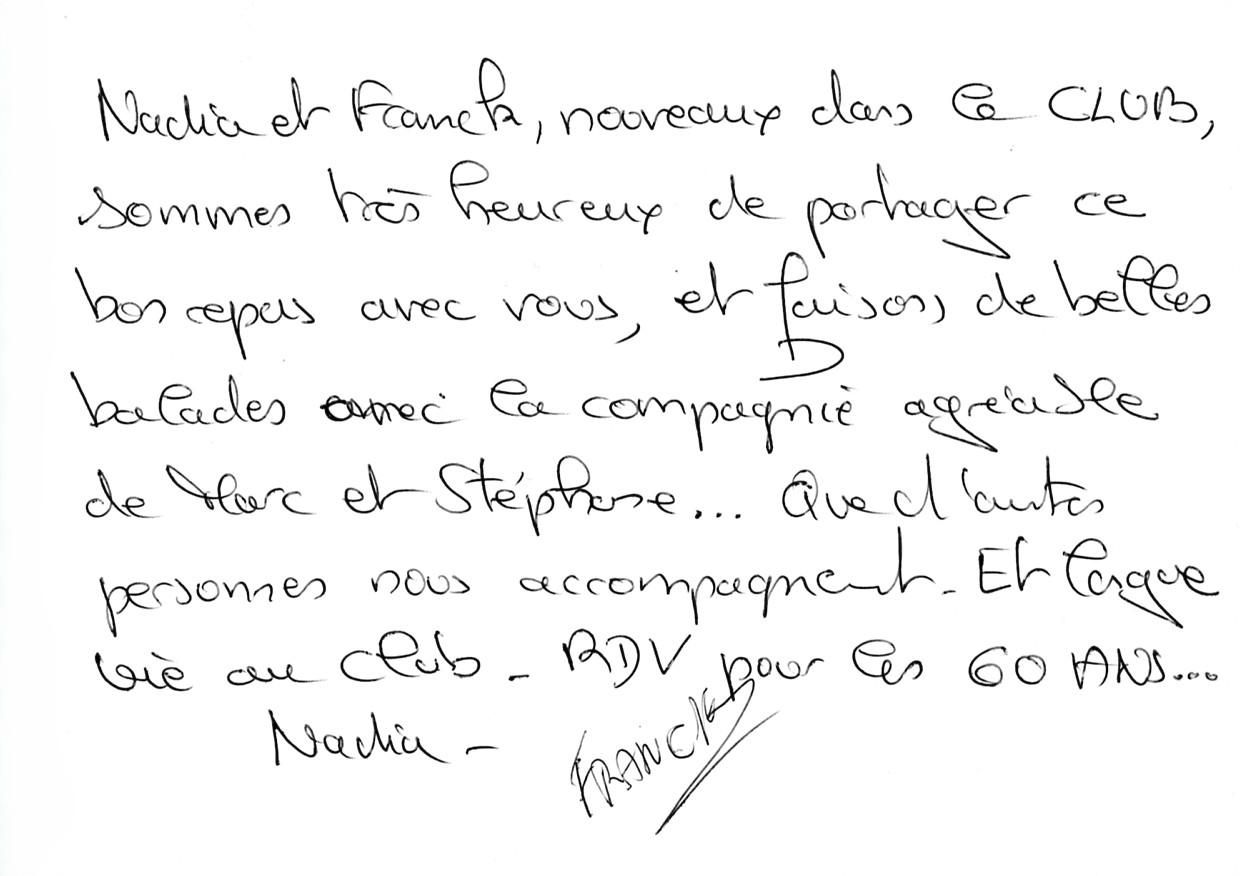 Nadia et Franck, nouveaux dans le CLUB,
sommes très heureux de partager ce
bon repas avec vous, et faisons de belles
balades avec la compagnie agréable
de Marc et Stéphane... Que d'autres
personnes nous accompagnent. Et longue
vie au club - RDV pour les 60 ANS...
Nadia - FRANCK